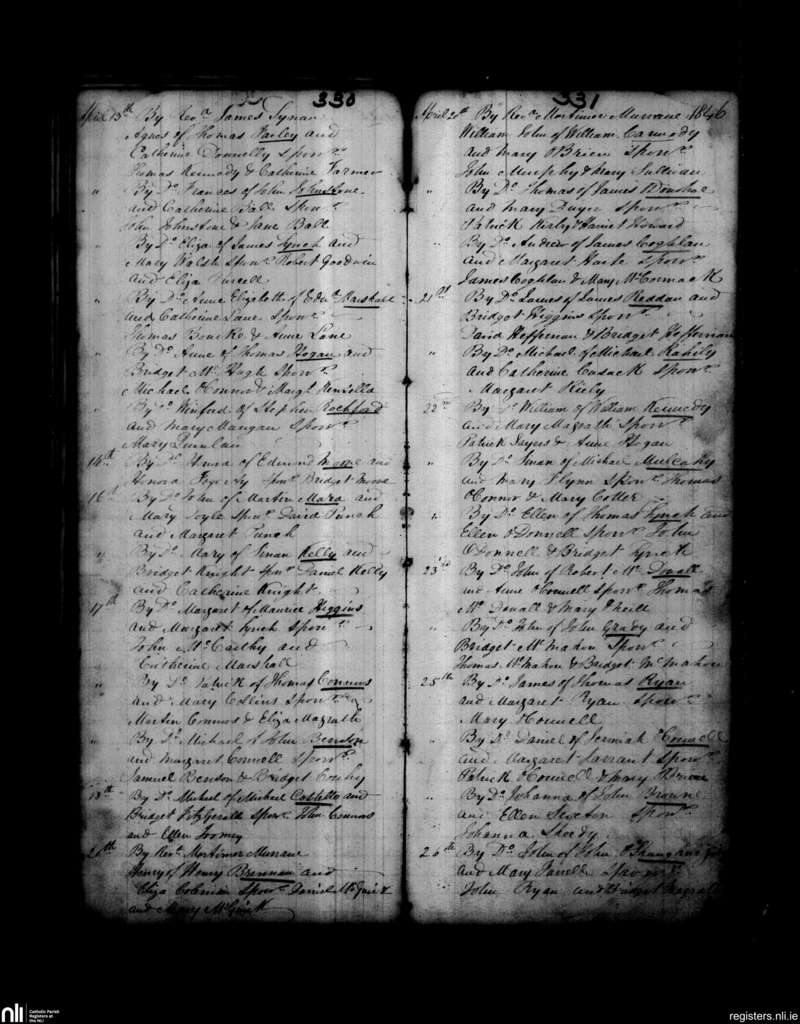 330
April 13th By Revd. James Synan
Agnes of Thomas Farley and
Catherine Donnelly Sponrs.
Thomas Kennedy & Catherine Farmer
" By Do. Frances of John Johnstone
and Catherine Ball Sponrs.
John Johnstone & Jane Ball
" By Do. Eliza of James Lynch and
Mary Walsh Sponrs. Robert Goodwin
and Eliza Purcell
" By Do. Anne Elizabeth of Edwd. Marshall
and Catherine Lane Sponrs.
Thomas Bourke & Anne Lane
" By Do. Anne of Thomas Hogan and
Bridget Mc Hugh Sponrs.
Michael O'Connor & Margt. Kensella
" By Do. Winifred of Stephen Rochford
and Mary Mangan Sponr.
Mary Quinlan
14th By Do. Honora of Edmund Moore and
Honora Sponr. Bridget Moore
16th By Do. John of Martin Mara and
Mary Sponrs. David Punch
and Margaret Punch
" By Do. Mary of Kelly and
Bridget Knight Sponrs. Daniel Kelly
and Catherine Knight
17th By Do. Margaret of Maurice Higgins
and Margaret Lynch Sponrs.
John McCarthy and
Catherine Marshall
" By Do. Patrick of Thomas Connors
and Mary Collins Sponrs.
Martin Connors & Eliza Magrath
" By Do. Michael of John Benson
and Margaret Connell Sponrs.
Samuel Benson & Bridget
18th By Do. Michael of Michael Costello and
Bridget FitzGerald Sponrs. John Connors
and Ellen Toomey
20th By Revd. Mortimer Murrane
Henry of Henry Brennan and
Eliza Sponrs. Daniel McGuirk
and Mary McGuirk
331
April 20th By Revd. Mortimer Murrane 1846
William John of William Carmody
and Mary O'Brien Sponrs.
John Murphy & Mary Sullivan
" By Do. Thomas of James
and Mary Dwyer Sponrs.
Patrick Kirby & Harriet Howard
" By Do. Andrew of James Coghlan
and Margaret Harte Sponrs.
James Coghlan & Mary McCormack
21st By Do. James of James Reddan and
Bridget Higgins Sponrs.
David Heffernan & Bridget Heffernan
" By Do. Michael of Michael Rahily
and Catherine Cusack Sponr.
Margaret Kiely
22nd By Do. William of William Kennedy
and Mary Magrath Sponrs.
Patrick Sayers & Anne Hogan
" By Do. of Michael Mulcahy
and Mary Flynn Sponrs. Thomas
O'Connor & Mary Colter
" By Do. Ellen of Thomas Lynch and
Ellen O'Donnell Sponrs. John
O'Donnell & Bridget Lynch
23rd By Do. John of Robert Mc Donall
and Anne O'Connell Sponrs. Thomas
Mc Donall & Mary O'Neill
" By Do. John of John Grady and
Bridget McMahon Sponrs.
Thomas McMahon & Bridget McMahon
25th By Do. James of Thomas Ryan
and Margaret Ryan Sponr.
Mary O'Connell
" By Do. Daniel of Jeremiah O'Connell
and Margaret Sarrant Sponrs.
Patrick O'Connell & Mary O'Brien
" By Do. Johanna of John Browne
and Ellen Sexton Sponr.
Johanna Sheedy
26th By Do. John of John
and Mary Farrell Sponrs.
John Ryan and Bridget Magrath
nli
Catholic Parish
Registers at
the NLI
registers.nli.ie